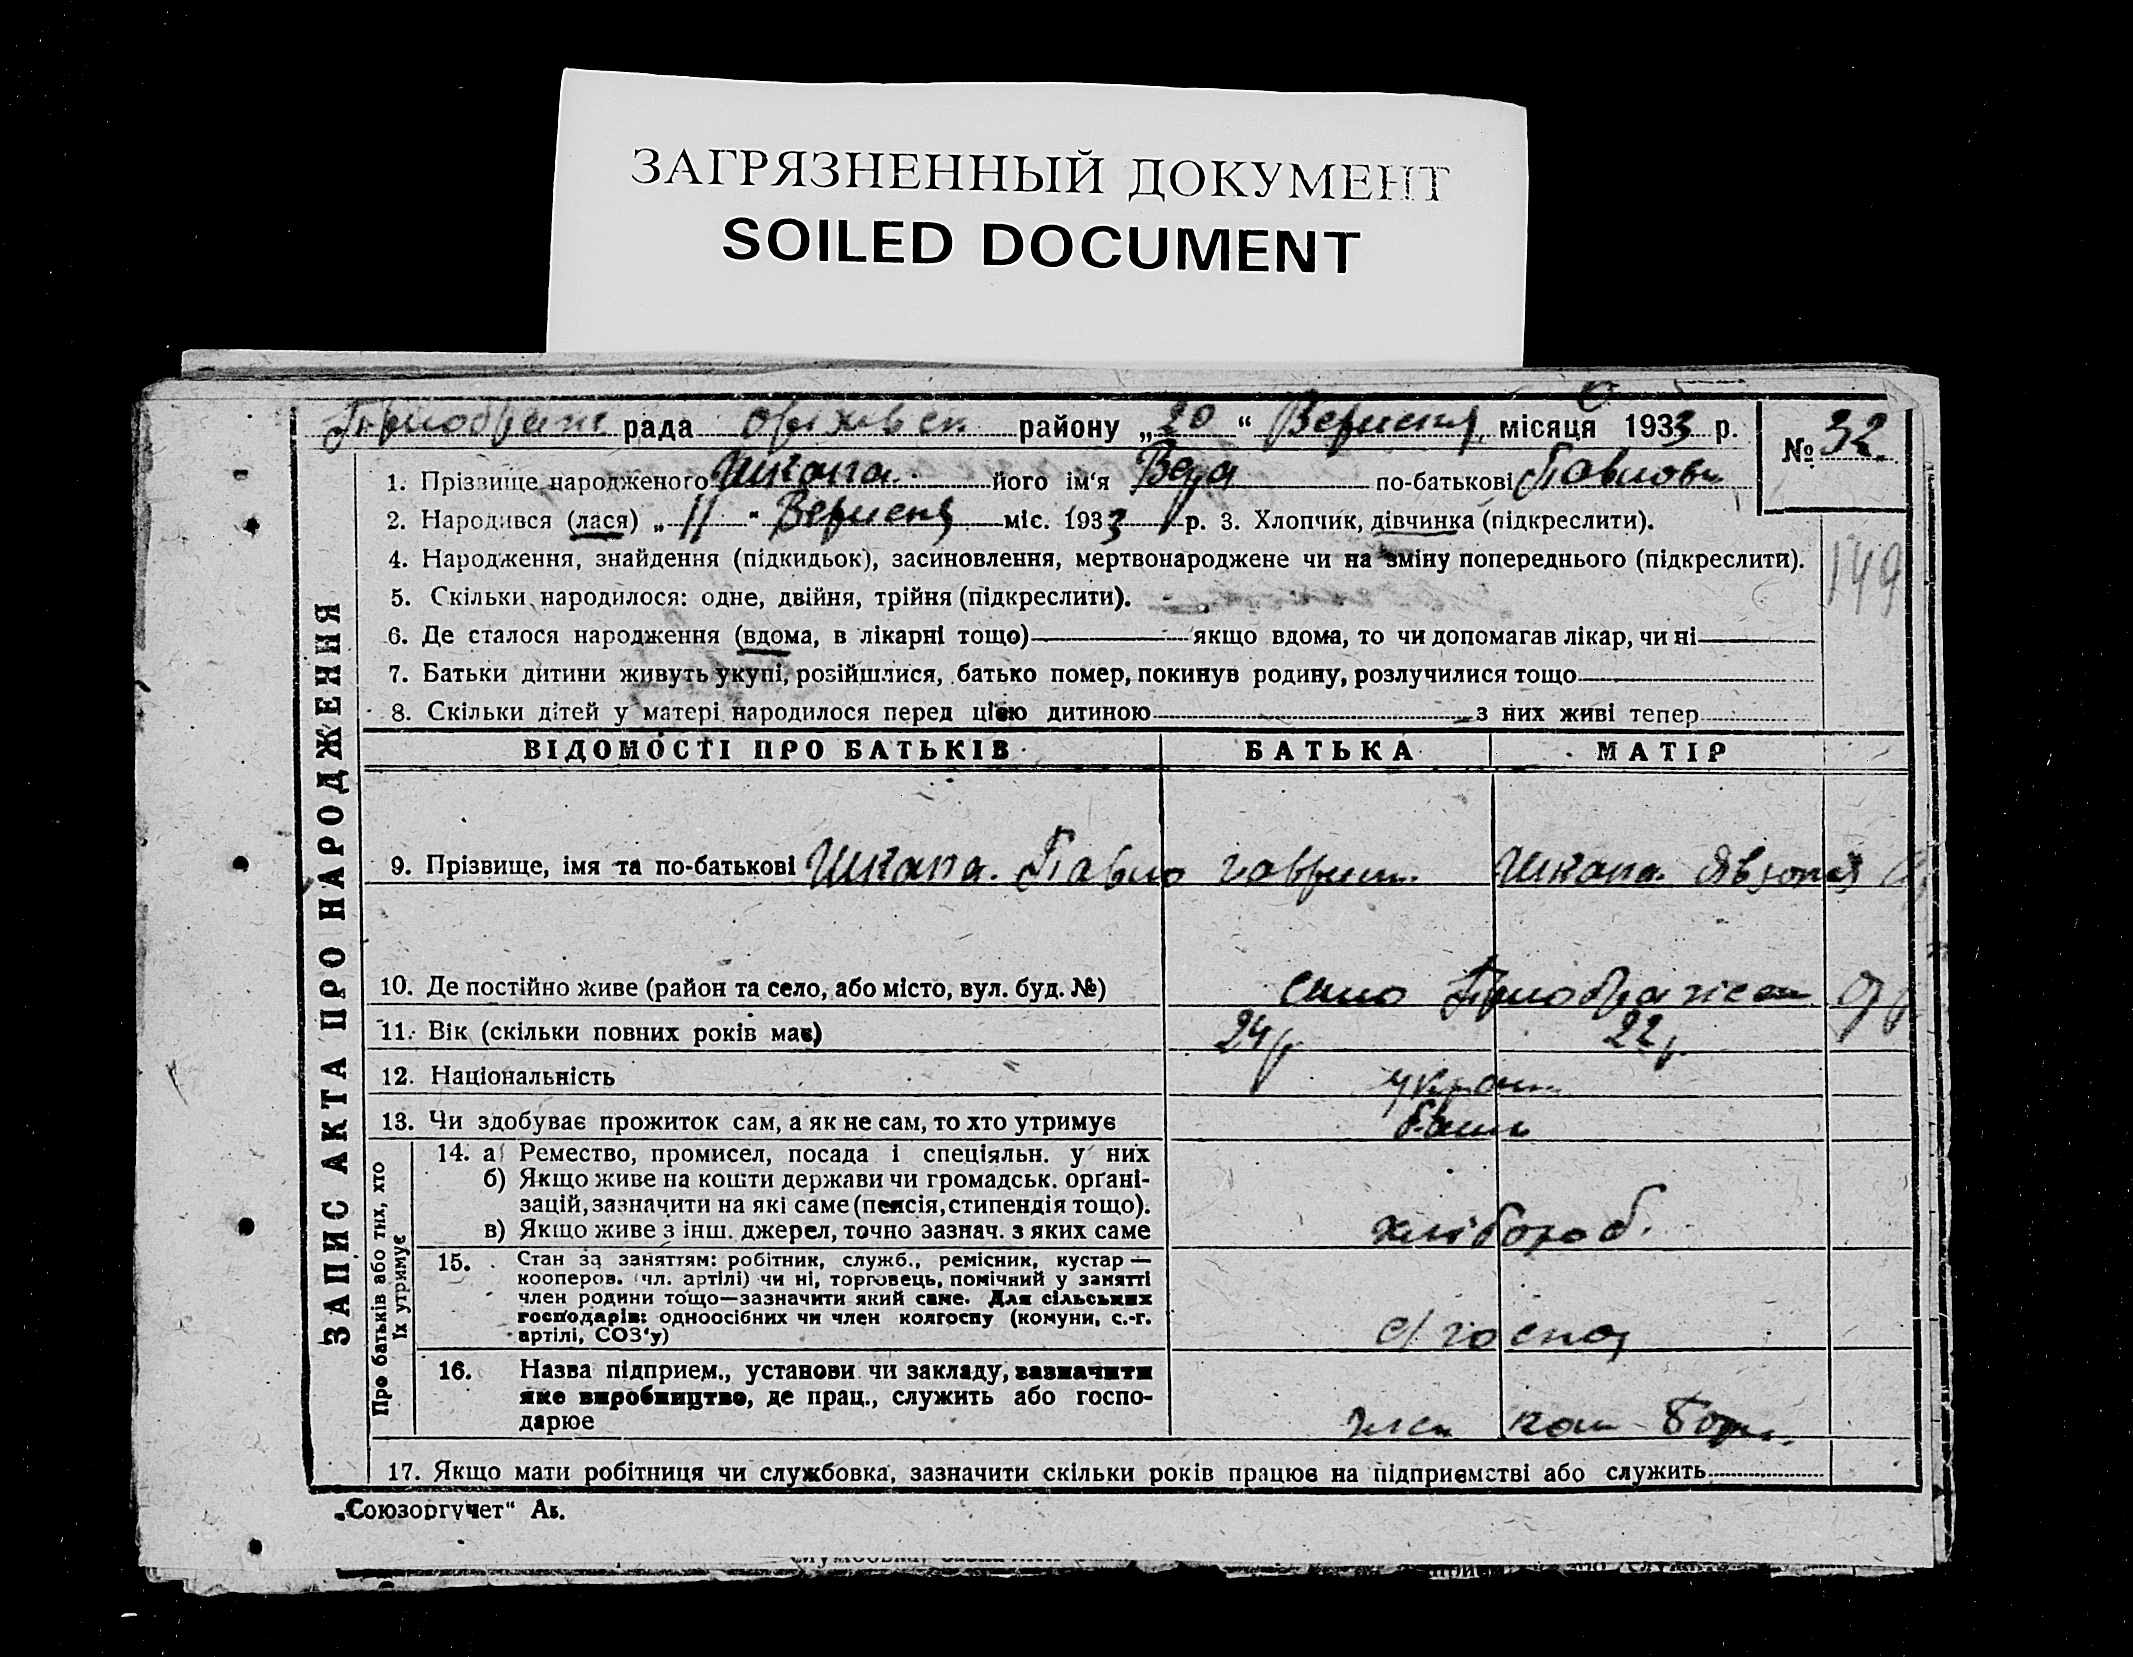 ЗАГРЯЗНЕННЫЙ ДОКУМЕНТ
SOILED DOCUMENT
рада району „20“ Вересня місяця 1933 р.
№ 32.
1. Прізвище народженого Шкапа. його ім'я по-батькові Павловн
2. Народився (лася) „11“ Вересня міс. 1933 р. 3. Хлопчик, дівчинка (підкреслити).
4. Народження, знайдення (підкидьок), засиновлення, мертвонароджене чи на зміну попереднього (підкреслити).
149
5. Скільки народилося: одне, двійня, трійня (підкреслити).
6. Де сталося народження (вдома, в лікарні тощо) якщо вдома, то чи допомагав лікар, чи ні
7. Батьки дитини живуть укупі, розійшлися, батько помер, покинув родину, розлучилися тощо
8. Скільки дітей у матері народилося перед цією дитиною з них живі тепер
ВІДОМОСТІ ПРО БАТЬКІВ БАТЬКА МАТІР
9. Прізвище, імя та по-батькові Шкапа. Павло Шкапа.
10. Де постійно живе (район та село, або місто, вул. буд. №) село
11. Вік (скільки повних років має) 24 р. 22 р.
12. Національність украин
13. Чи здобуває прожиток сам, а як не сам, то хто утримує
14. а) Ремество, промисел, посада і спеціяльн. у них
б) Якщо живе на кошти держави чи громадськ. орґані-
зацій, зазначити на які саме (пенсія, стипендія тощо).
в) Якщо живе з інш. джерел, точно зазнач. з яких саме хлібороб.
15. Стан за заняттям: робітник, служб., ремісник, кустар —
кооперов. (чл. артілі) чи ні, торговець, помічний у занятті
член родини тощо—зазначити який саме. Для сільських
господарів: одноосібних чи член колгоспу (комуни, с.-г.
артілі, СОЗ'у)
16. Назва підприєм., установи чи закладу, зазначити
яке виробництво, де прац., служить або госпо-
дарює
17. Якщо мати робітниця чи службовка, зазначити скільки років працює на підприємстві або служить
ЗАПИС АКТА ПРО НАРОДЖЕННЯ
Про батьків або тих, хто
їх утримує
„Союзоргучет“